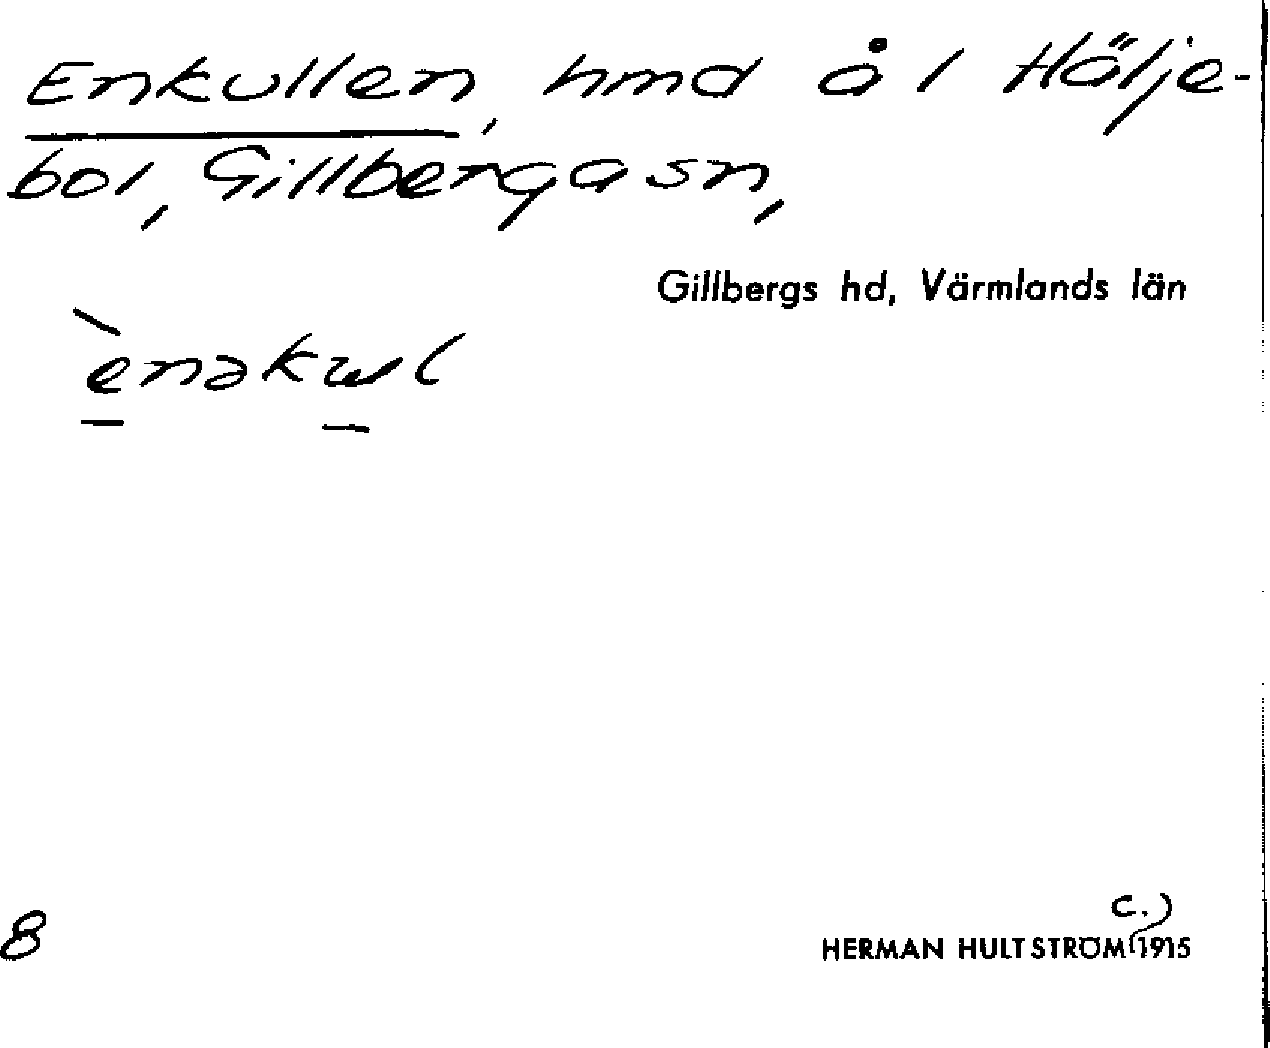 Enkullen, hmd å 1 Hälje-
bol, Gillberga sn,
Gillbergs hd, Värmlands län
ènəkɯl
8
c.)
HERMAN HULTSTRÖM 1915